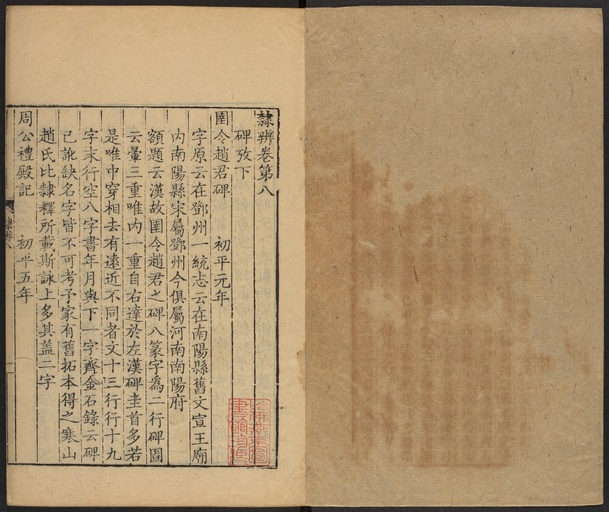 隸辨卷第八
碑攷下
圉令趙君碑 初平元年
字原云在鄧州一統志云在南陽縣舊文宣王廟
內南陽縣宋屬鄧州今俱屬河南南陽府
額題云漢故圉令趙君之碑八篆字為二行碑圖
云暈三重唯內一重自右達於左漢碑圭首多若
是唯中穿相去有遠近不同者文十三行行十九
字末行空八字書年月與下一字齊金石錄云碑
已訛缺名字皆不可考予家有舊拓本得之寒山
趙氏比隸釋所載斯詠上多其盖二字
周公禮殿記 初平五年